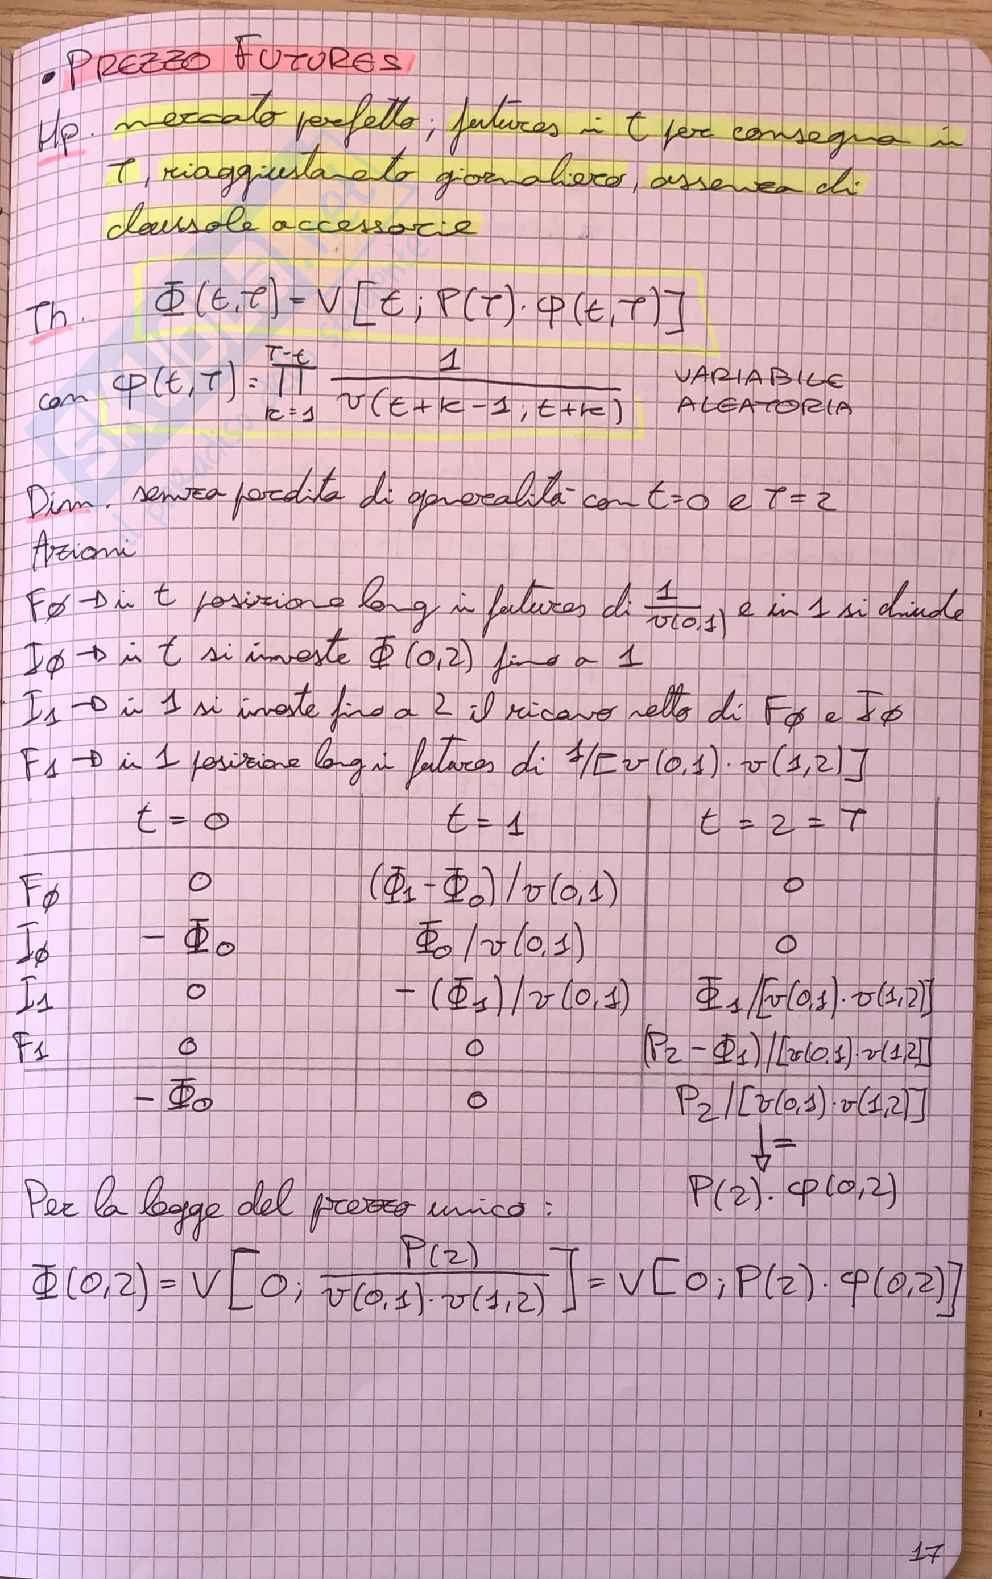 • PREZZO FUTURES
Hp. mercato perfetto; futures in t per consegna in
T, riaggiustamento giornaliero, assenza di
clausole accessorie
Th. Φ(t,T) = V[t; P(T)·φ(t,T)]
con φ(t,T) = ∏_{k=1}^{T-t} 1/v(t+k-1, t+k) VARIABILE ALEATORIA
Dim. senza perdita di generalità con t=0 e T=2
Azioni
FØ → in t posizione long in futures di 1/v(0,1) e in 1 si chiude
IØ → in t si investe Φ(0,2) fino a 1
I1 → in 1 si investe fino a 2 il ricavo netto di FØ e IØ
F1 → in 1 posizione long in futures di 1/[v(0,1)·v(1,2)]
t = 0 t = 1 t = 2 = T
FØ 0 (Φ1-Φ0)/v(0,1) 0
IØ -Φ0 Φ0/v(0,1) 0
I1 0 -(Φ1)/v(0,1) Φ1/[v(0,1)·v(1,2)]
F1 0 0 (P2-Φ1)/[v(0,1)·v(1,2)]
-Φ0 0 P2/[v(0,1)·v(1,2)]
↓=
P(2)·φ(0,2)
Per la legge del prezzo unico:
Φ(0,2) = V[0; P(2)/v(0,1)·v(1,2)] = V[0; P(2)·φ(0,2)]
17